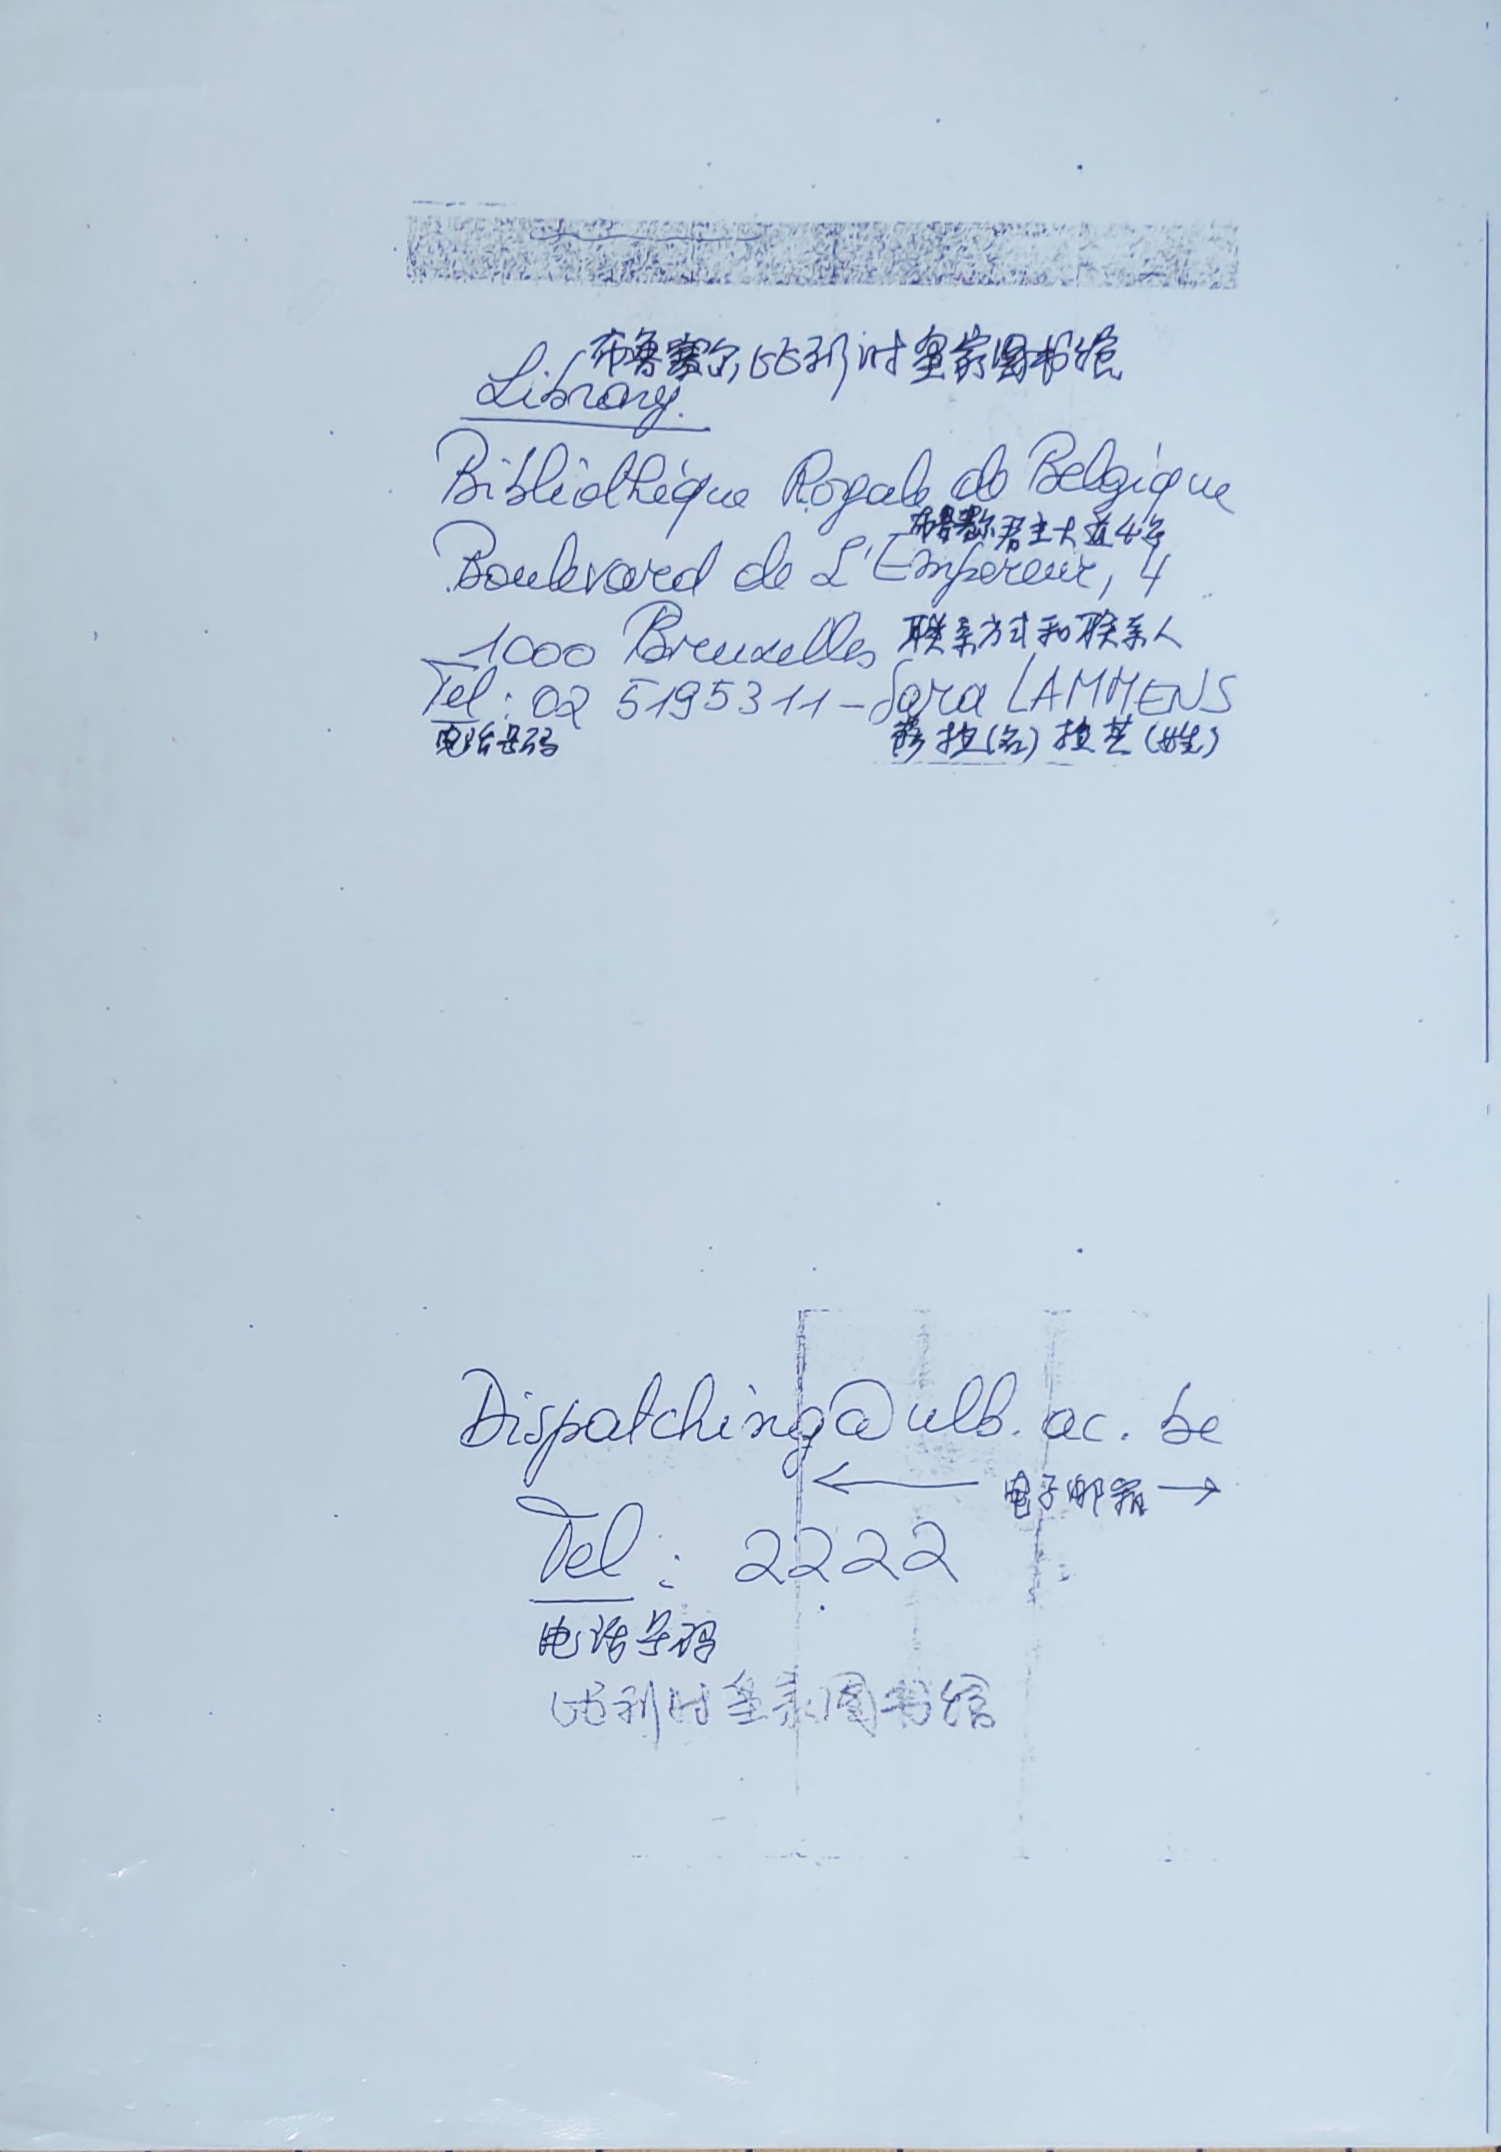 布鲁塞尔,比利时皇家图书馆
Library.
Bibliothéque Royale de Belgique
布鲁塞尔君主大道4号
Boulevard de L'Empereur, 4
1000 Bruxelles 联系方式和联系人
Tel : 02 5195311 - Sara LAMMENS
电话号码 萨拉(名) 拉芒(姓)
Dispatching@ulb.ac.be
← 电子邮箱 →
Tel : 2222
电话号码
比利时皇家图书馆